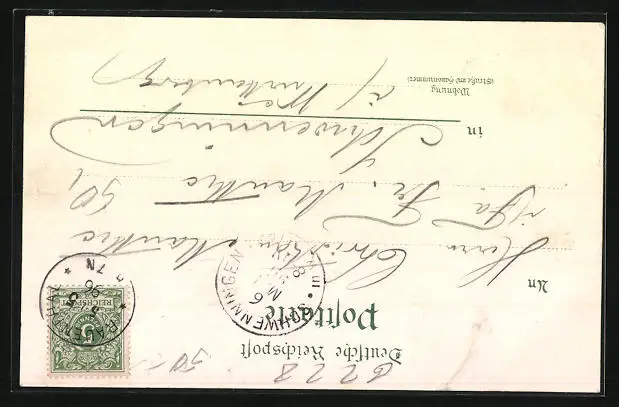 6228
50
Deutsche Reichspost
Postkarte
REICHSPOST
5
96
7N
SCHWENNINGEN
6 M
8-9 V
III
An
Herrn Christian Mauthe
i/Fa Fr. Mauthe Söh,
in Schwenningen
Wohnung
(Straße und Hausnummer)
a/ Ne
Württemberg